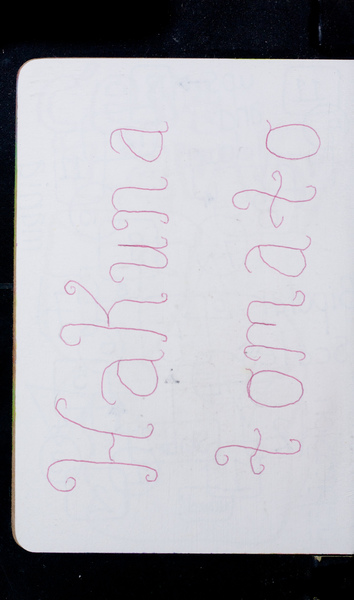 Hakuna
tomato